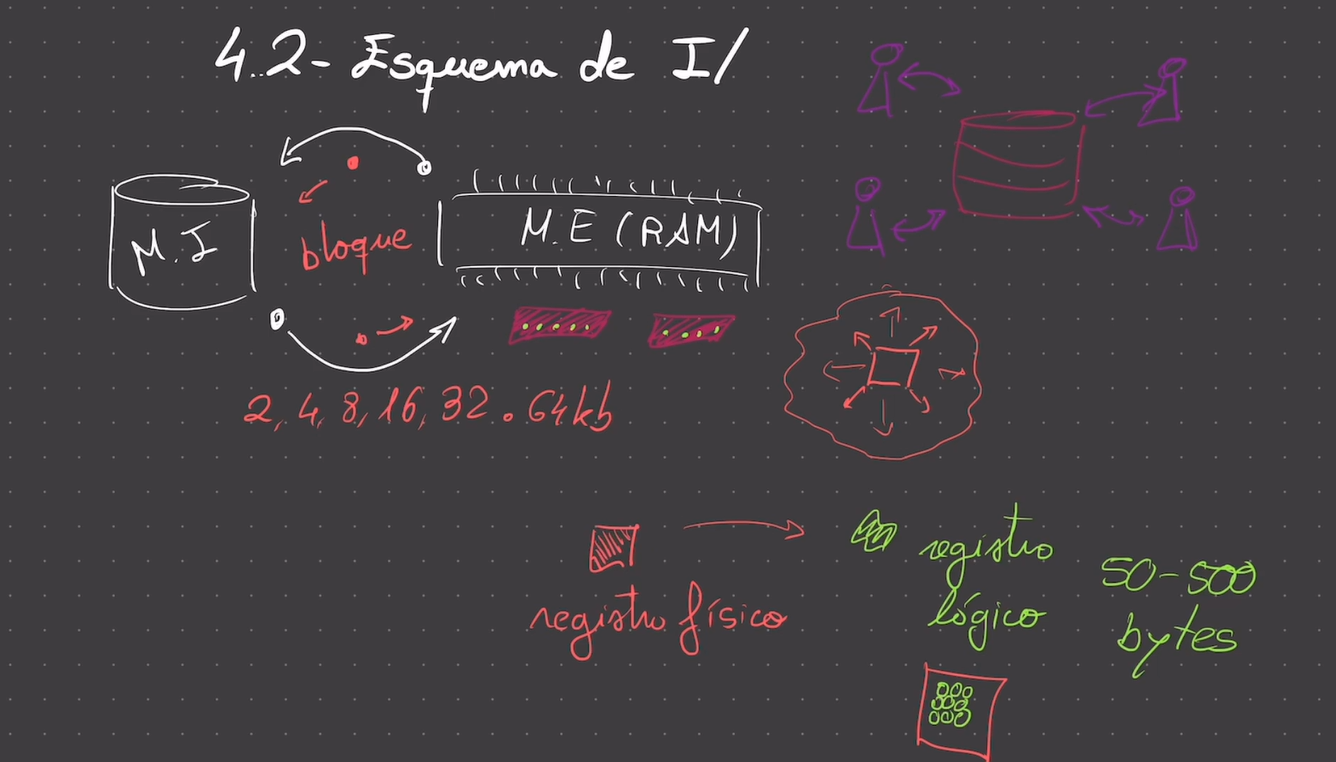 4.2- Esquema de I/
M.I
bloque
M.E (RAM)
2, 4, 8, 16, 32. 64kb
registro físico
registro
lógico
50-500
bytes